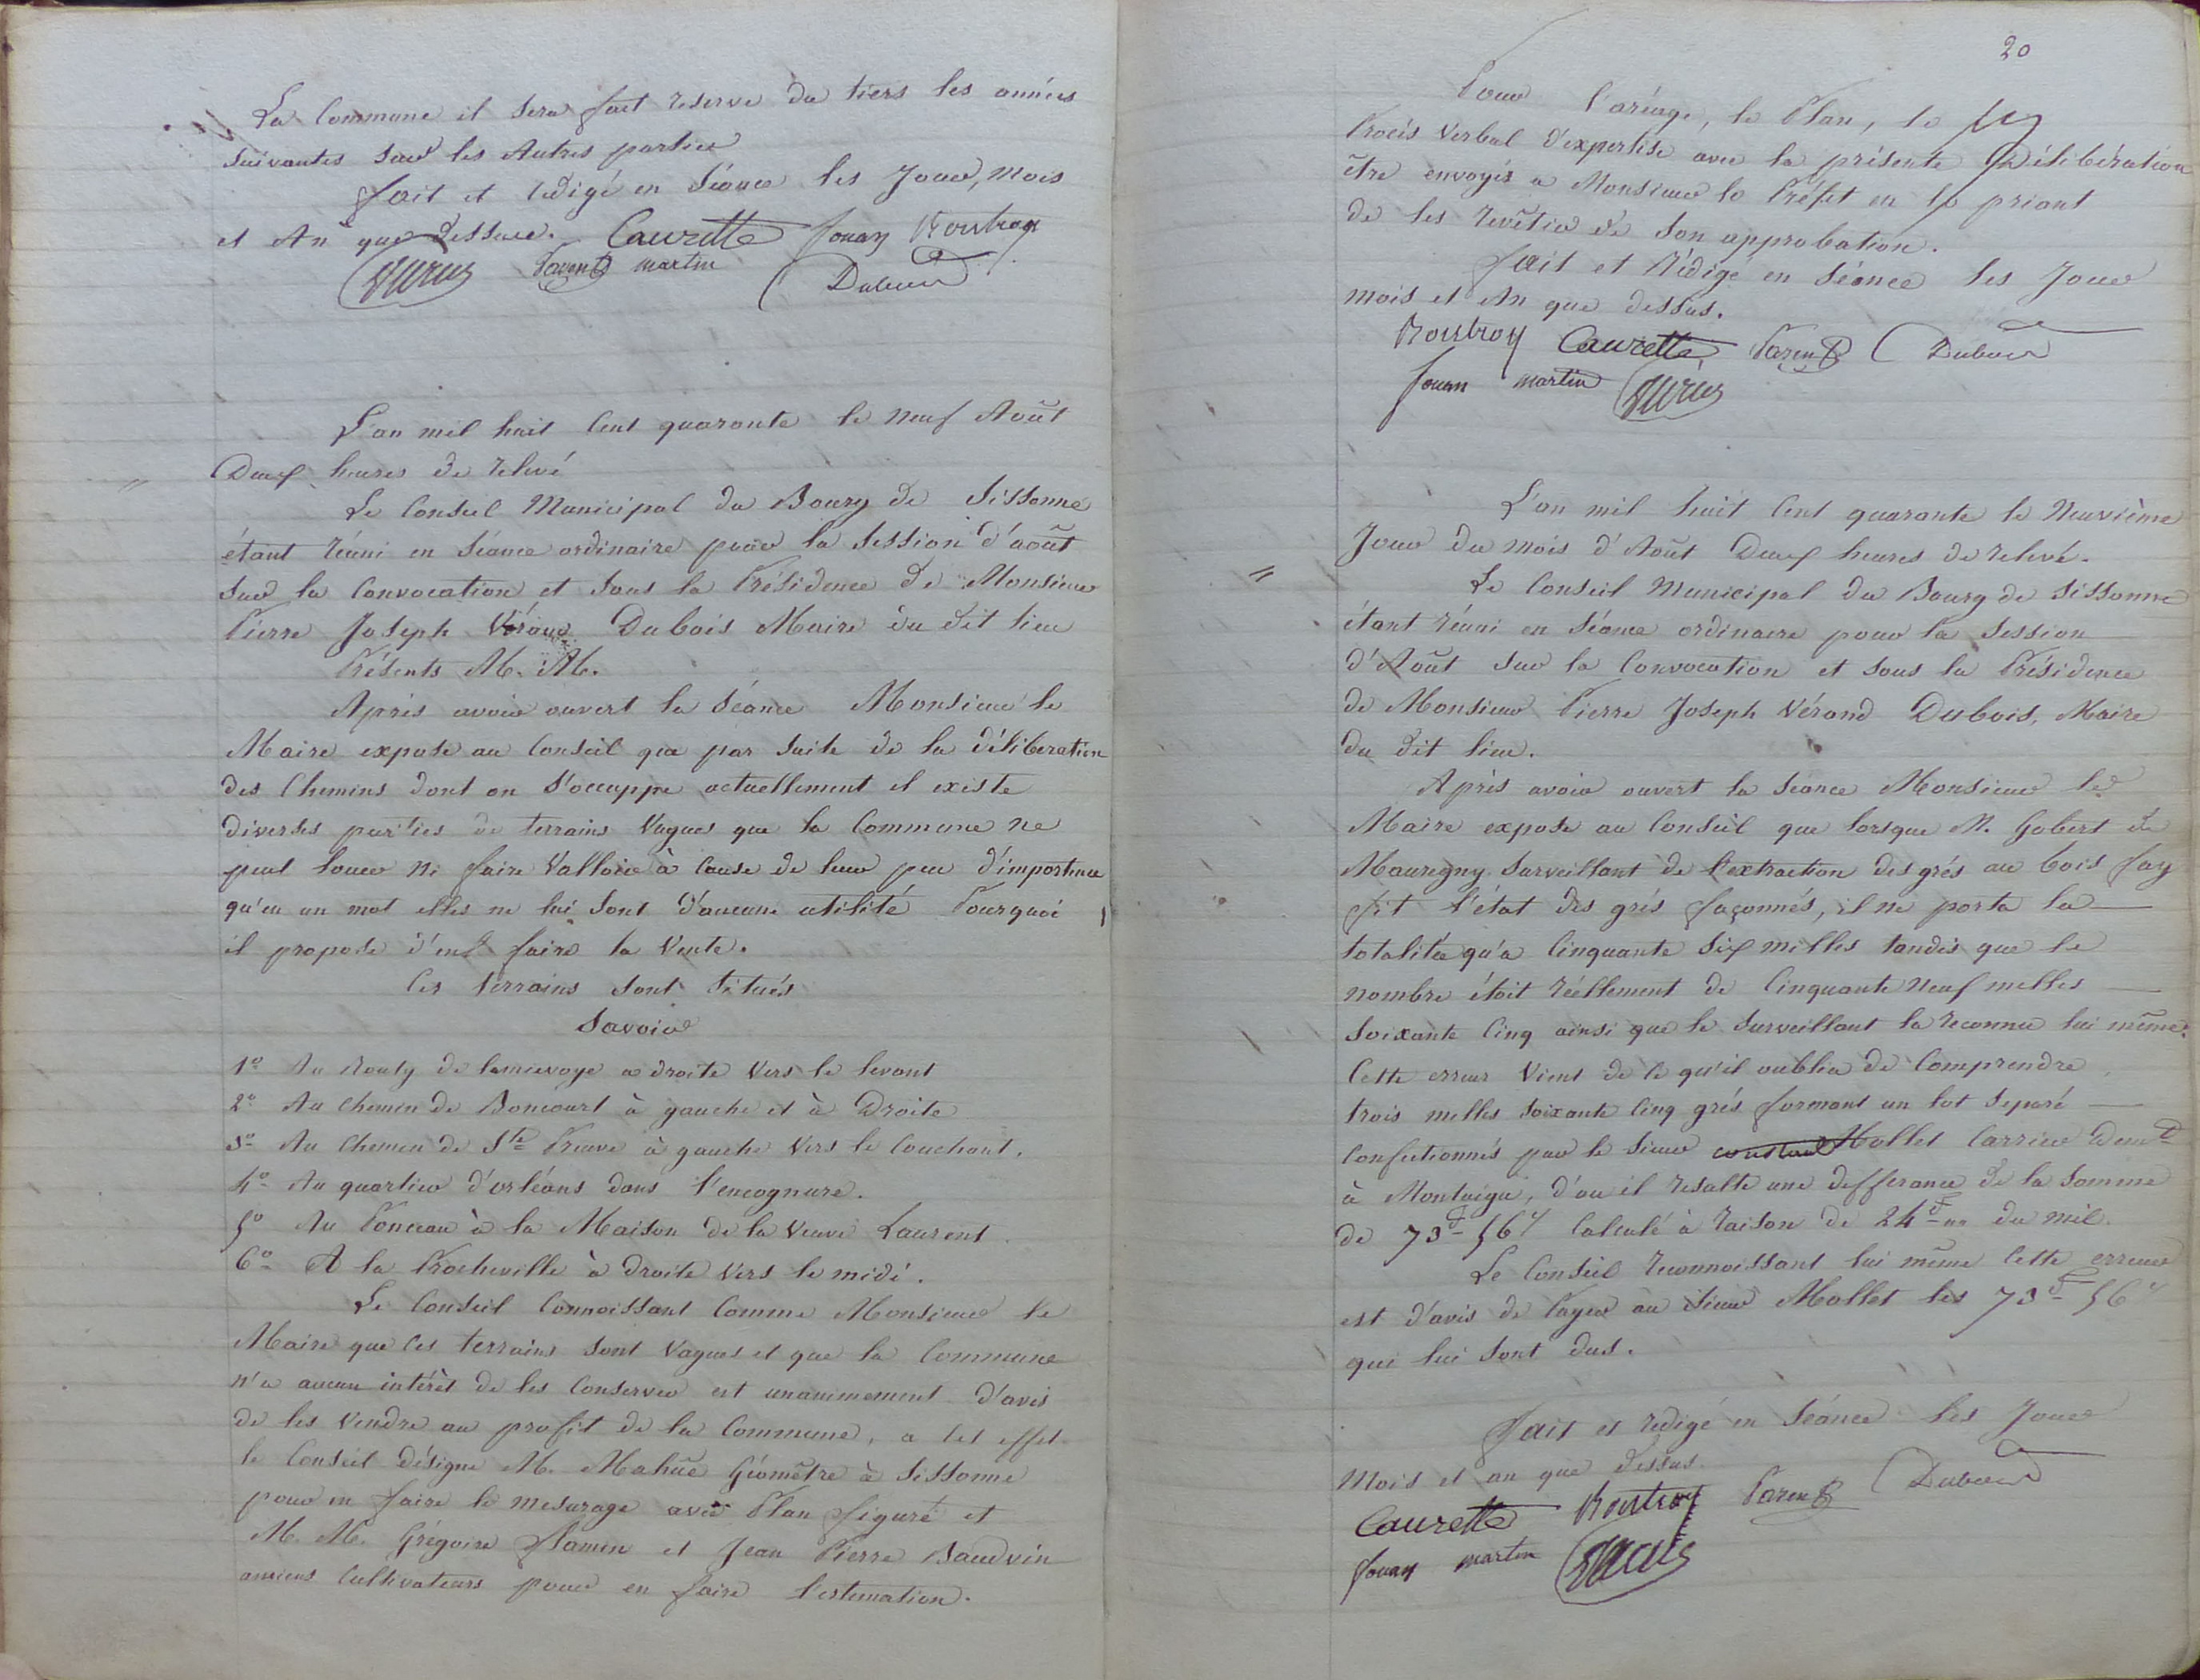 La Commune il sera fait reserve du tiers les années
suivantes sur les Autres parties
fait et rédigé en séance les Jour, mois
et An que dessus. Caurette Jouan Roustroy
Parent martin Dubois
L'an mil huit Cent quarante le neuf Août
Deux heures de relevé
Le Conseil Municipal du Bourg de Sissonne
étant réuni en séance ordinaire pour la session d'août
sur la Convocation et sous la Présidence de Monsieur
Pierre Joseph Véron Dubois Maire du dit lieu
Présents M. M.
Après avoir ouvert la séance Monsieur le
Maire expose au Conseil que par suite de la délibération
des Chemins dont on s'occuppe actuellement il existe
diverses parties de terrains Vagues que la Commune ne
peut louer ni faire Valloir à Cause de leur peu d'importence
qu'en un mot elles ne lui sont d'aucune utilité Pourquoi
il propose d'en faire la Vente.
Ces terrains sont situés
Savoir
1º Au Routy de lamievoye a droite Vers le levant
2º Au Chemin de Boncourt à gauche et à Droite
3º Au Chemin de Ste Preuve à gauche Vers le Couchant.
4º Au quartier d'orléans dans l'encognure.
5º Au Ponceau à la Maison de la Veuve Laurent.
6º A la Procheville à droite Vers le midi.
Le Conseil Connoissant Comme Monsieur le
Maire que Ces terrains sont Vagues et que la Commune
n'a aucun intérèt de les Conserver est unanimement d'avis
de les Vendre au profit de la Commune, a Cet effet
le Conseil désigne M. Mahüe Géomêtre à Sissonne
pour en faire le mesurage avec Plan figuré et
M. M. Grégoire flamin et Jean Pierre Baudvin
anciens Cultivateurs pour en faire l'estimation.
20
Pour l'aréage, le Plan, le
Procès Verbal d'expertise avec la présente Délibération
être envoyés a Monsieur le Préfet en le priant
de les revêtir de son approbation.
fait et Rédigé en séance les Jour
mois et An que dessus.
Roustroy Caurette Parent Dubois
Jouan martin
L'an mil huit Cent quarante le Neuvième
Jour du mois d'Août Deux heures de relevé.
Le Conseil Municipal du Bourg de Sissonne
étant réuni en séance ordinaire pour la session
d'Août sur la Convocation et sous la Présidence
de Monsieur Pierre Joseph Vérond Dubois, Maire
du dit lieu.
Après avoir ouvert la séance Monsieur le
Maire expose au Conseil que lorsque M. Gobert de
Mauregny Surveillant de l'extraction des grés au bois fay
fit l'état des grés façonnés, il ne porta la
totalitée qu'a Cinquante six milles tandis que le
nombre étoit réellement de Cinquante neuf milles
soixante Cinq ainsi que le Surveillant la reconnu lui même.
Cette erreur Vient de Ce qu'il oublia de Comprendre
trois milles soixante Cinq grés formant un lot separé
Confectionnés par le sieur Mollet Carrier Demt
à Montaigu, d'ou il resulte une differance de la somme
de 73f 56c Calculé à raison de 24f 00 du mil.
Le Conseil reconnoissant lui même Cette erreur
est d'avis de Payer au sieur Mollet les 73f 56c
qui lui sont dus.
fait et redigé en séance les Jour
Mois et an que dessus.
Caurette Roustroy Parent Dubois
Jouan martin